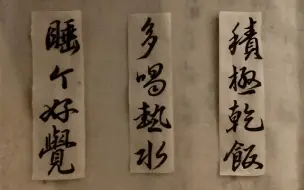 積極乾飯
多喝熱水
睡个好覺